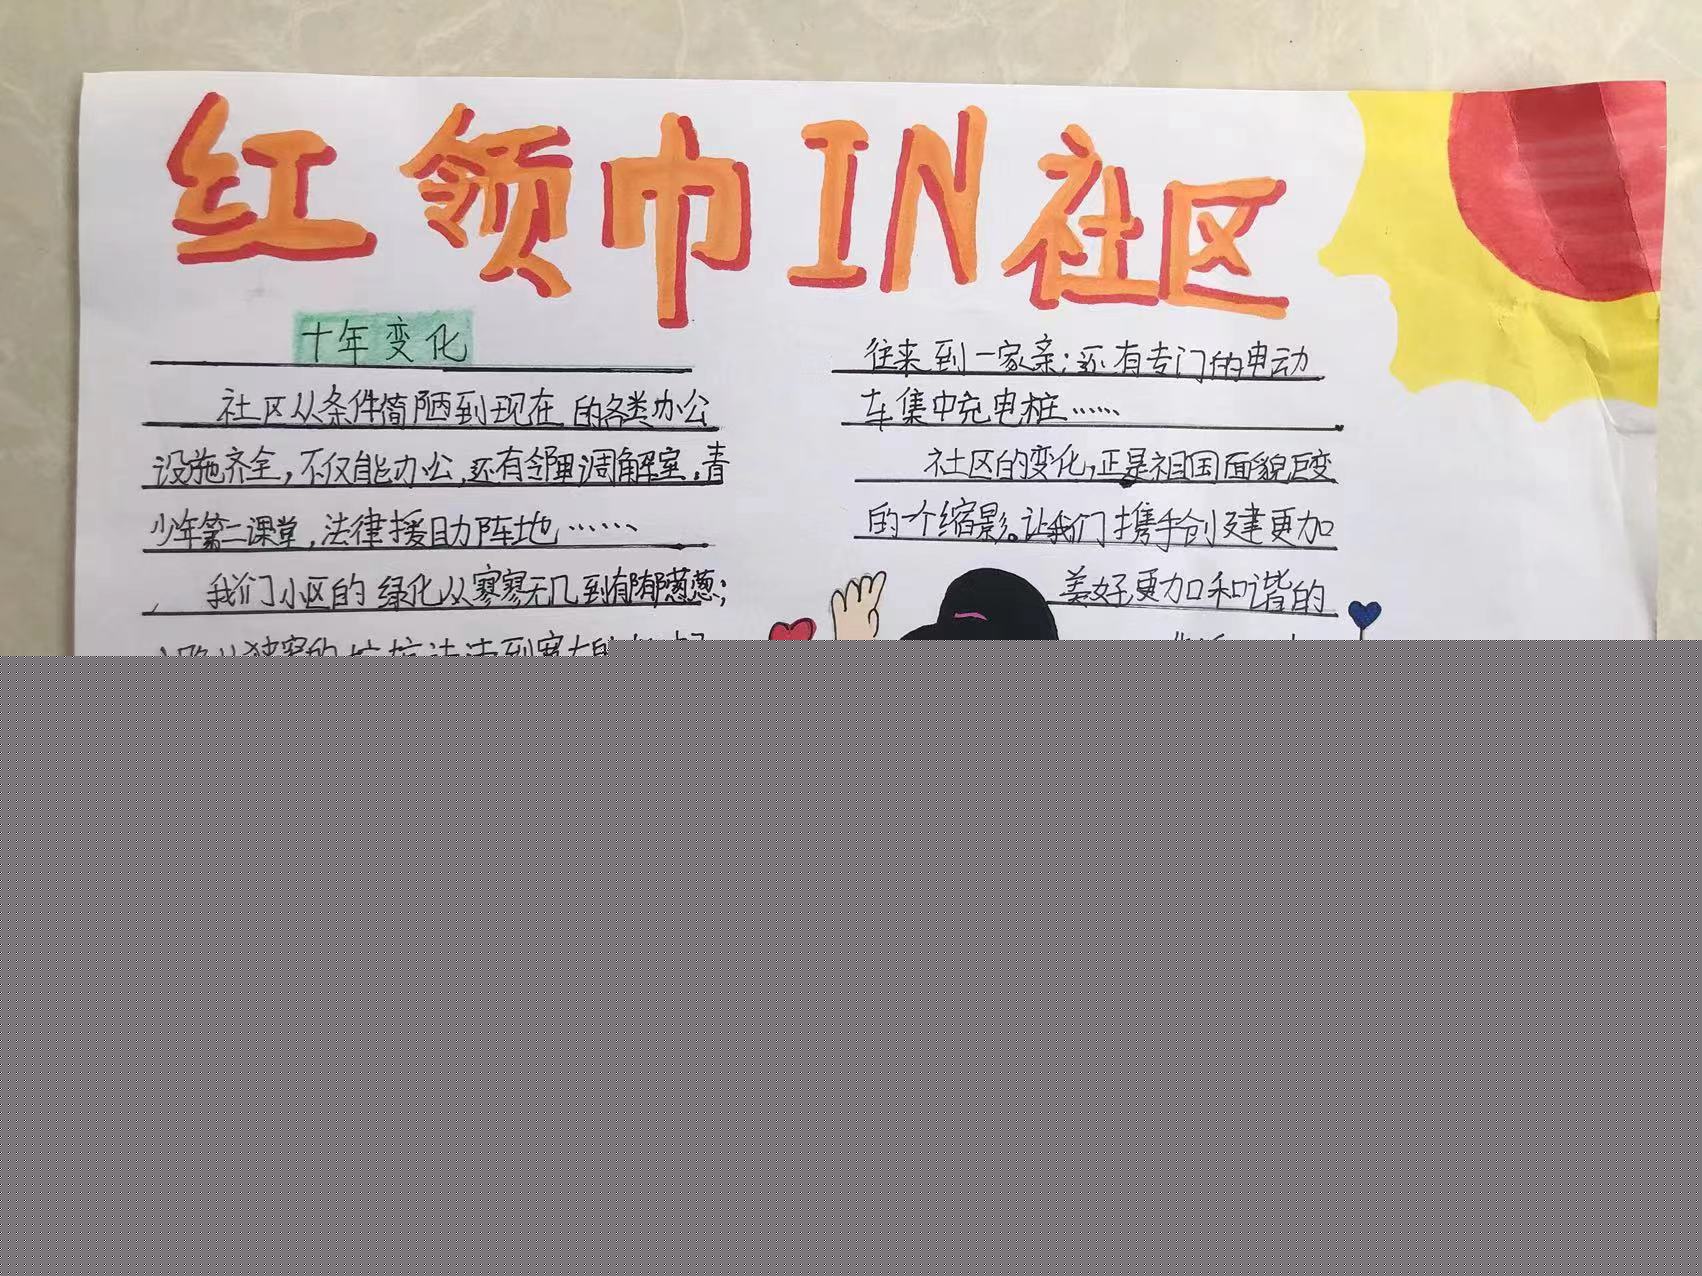 红领巾IN社区
十年变化
社区从条件简陋到现在的各类办公
设施齐全,不仅能办公,还有邻里调解室,青
少年第二课堂,法律援助阵地……
我们小区的绿化从寥寥无几到郁郁葱葱;
往来到一家亲;还有专门的电动
车集中充电桩……
社区的变化,正是祖国面貌巨变
的一个缩影。让我们携手创建更加
美好,更加和谐的